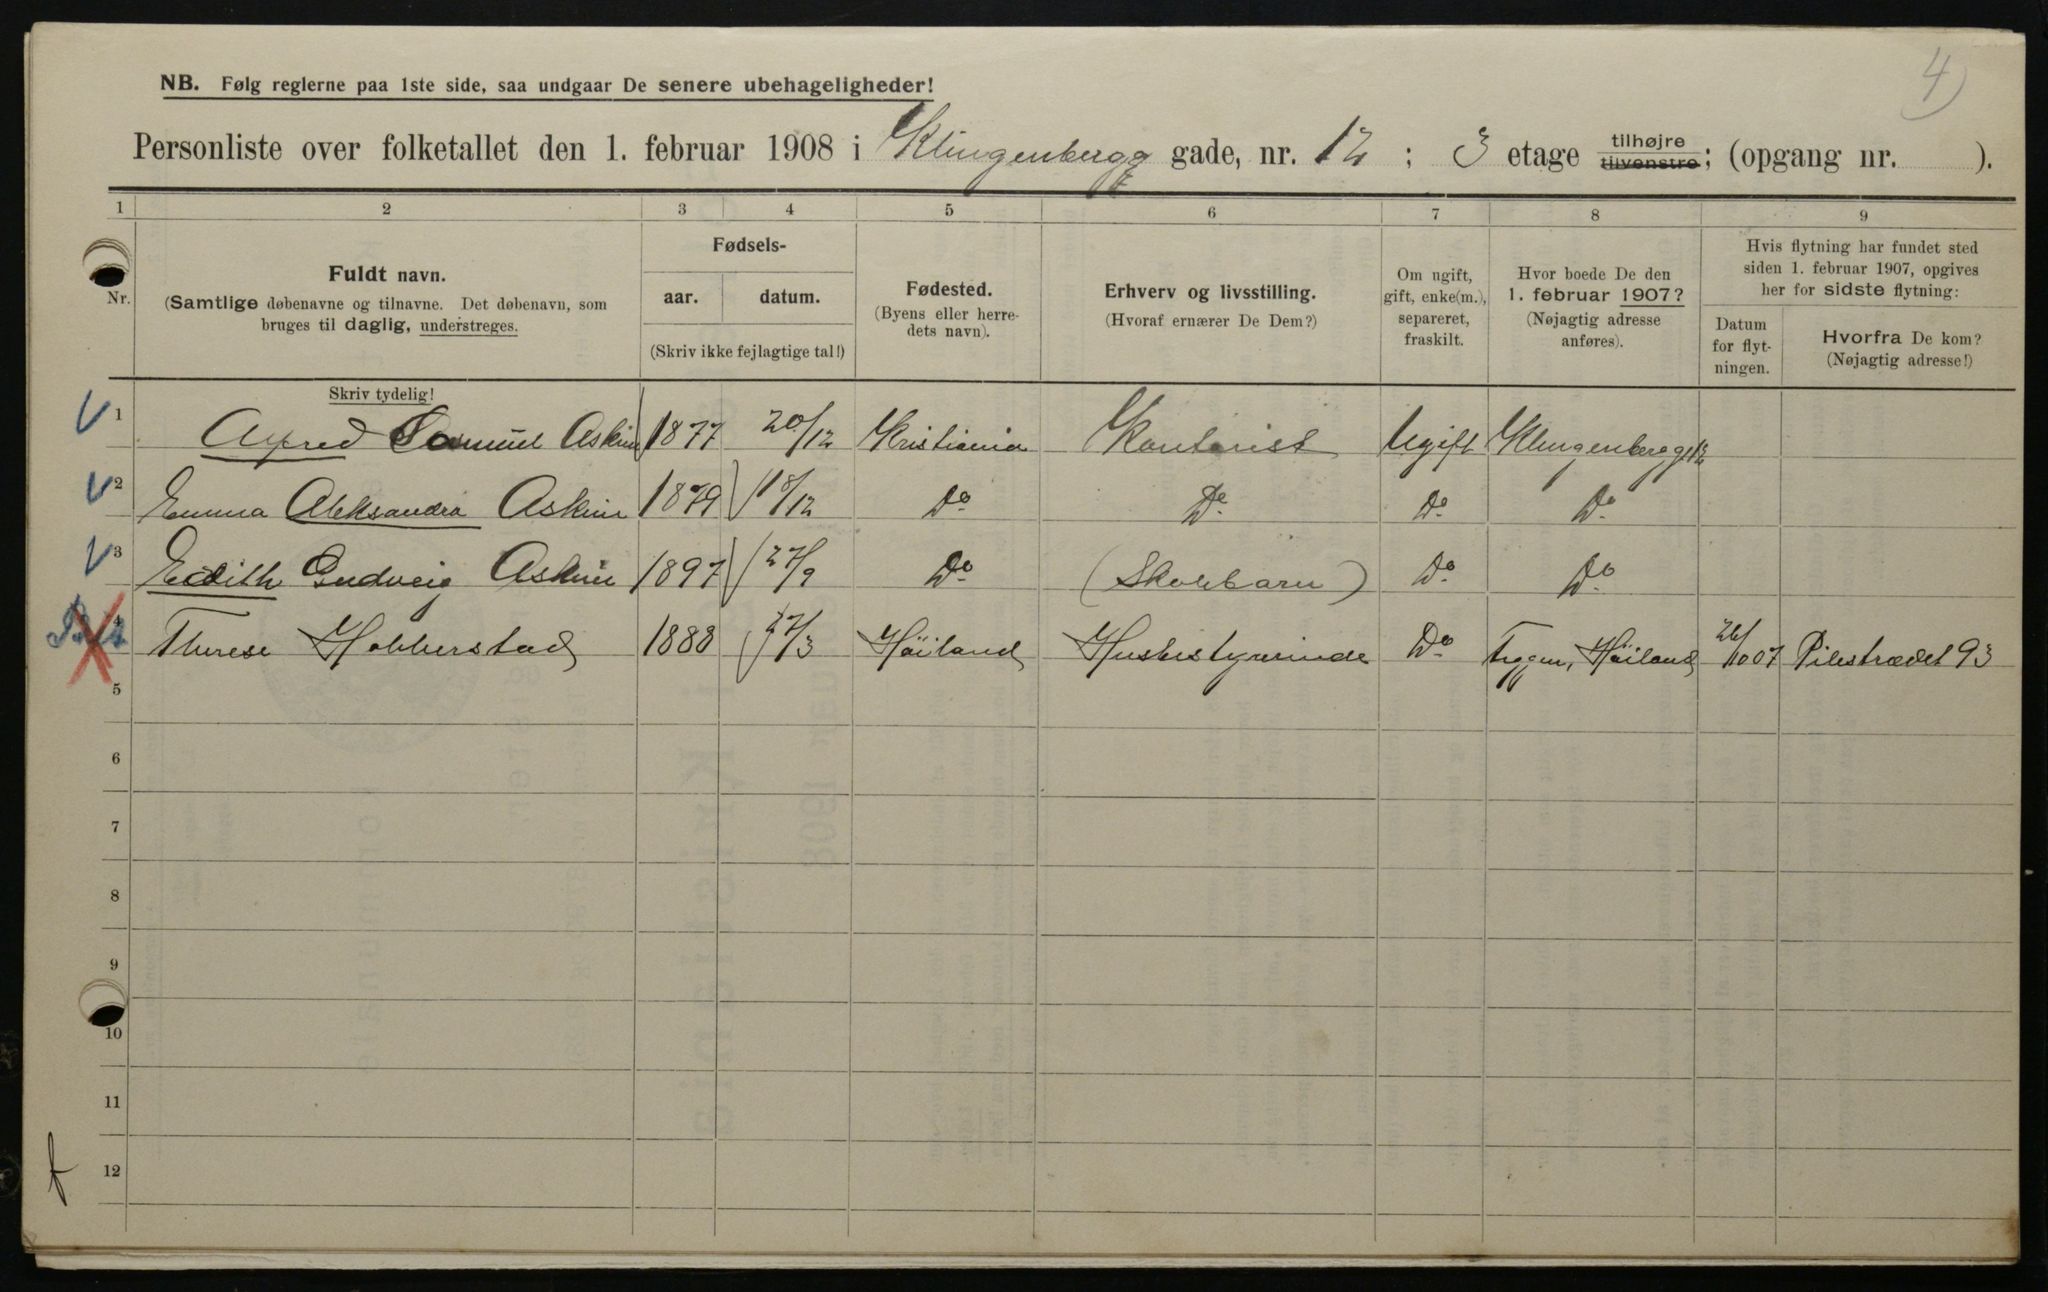 4)
NB. Følg reglerne paa 1ste side, saa undgaar De senere ubehageligheder!
Personliste over folketallet den 1. februar 1908 i Klingenbergg gade, nr. 12 ; 3 etage tilhøjre tilvenstre; (opgang nr. ).
1 2 3 4 5 6 7 8 9
Nr.
Fuldt navn.
(Samtlige døbenavne og tilnavne. Det døbenavn, som
bruges til daglig, understreges.
Skriv tydelig!
Fødsels-
aar. datum.
(Skriv ikke fejlagtige tal!)
Fødested.
(Byens eller herre-
dets navn).
Erhverv og livsstilling.
(Hvoraf ernærer De Dem?)
Om ugift,
gift, enke(m.),
separeret,
fraskilt.
Hvor boede De den
1. februar 1907?
(Nøjagtig adresse
anføres).
Hvis flytning har fundet sted
siden 1. februar 1907, opgives
her for sidste flytning:
Datum
for flyt-
ningen.
Hvorfra De kom?
(Nøjagtig adresse!)
1 Alfred Samuel Askim 1877 20/12 Kristiania Kontorist Ugift Klingenberggt 12
2 Emma Aleksandra Askim 1879 18/12 Do Do Do Do
3 Edith Gudveig Askim 1897 27/9 Do (Skolebarn) Do Do
4 Therese Hobberstad 1888 27/3 Höiland Husbestyrerinde Do Höiland 26/10 07 Pilestrædet 93
5
6
7
8
9
10
11
12